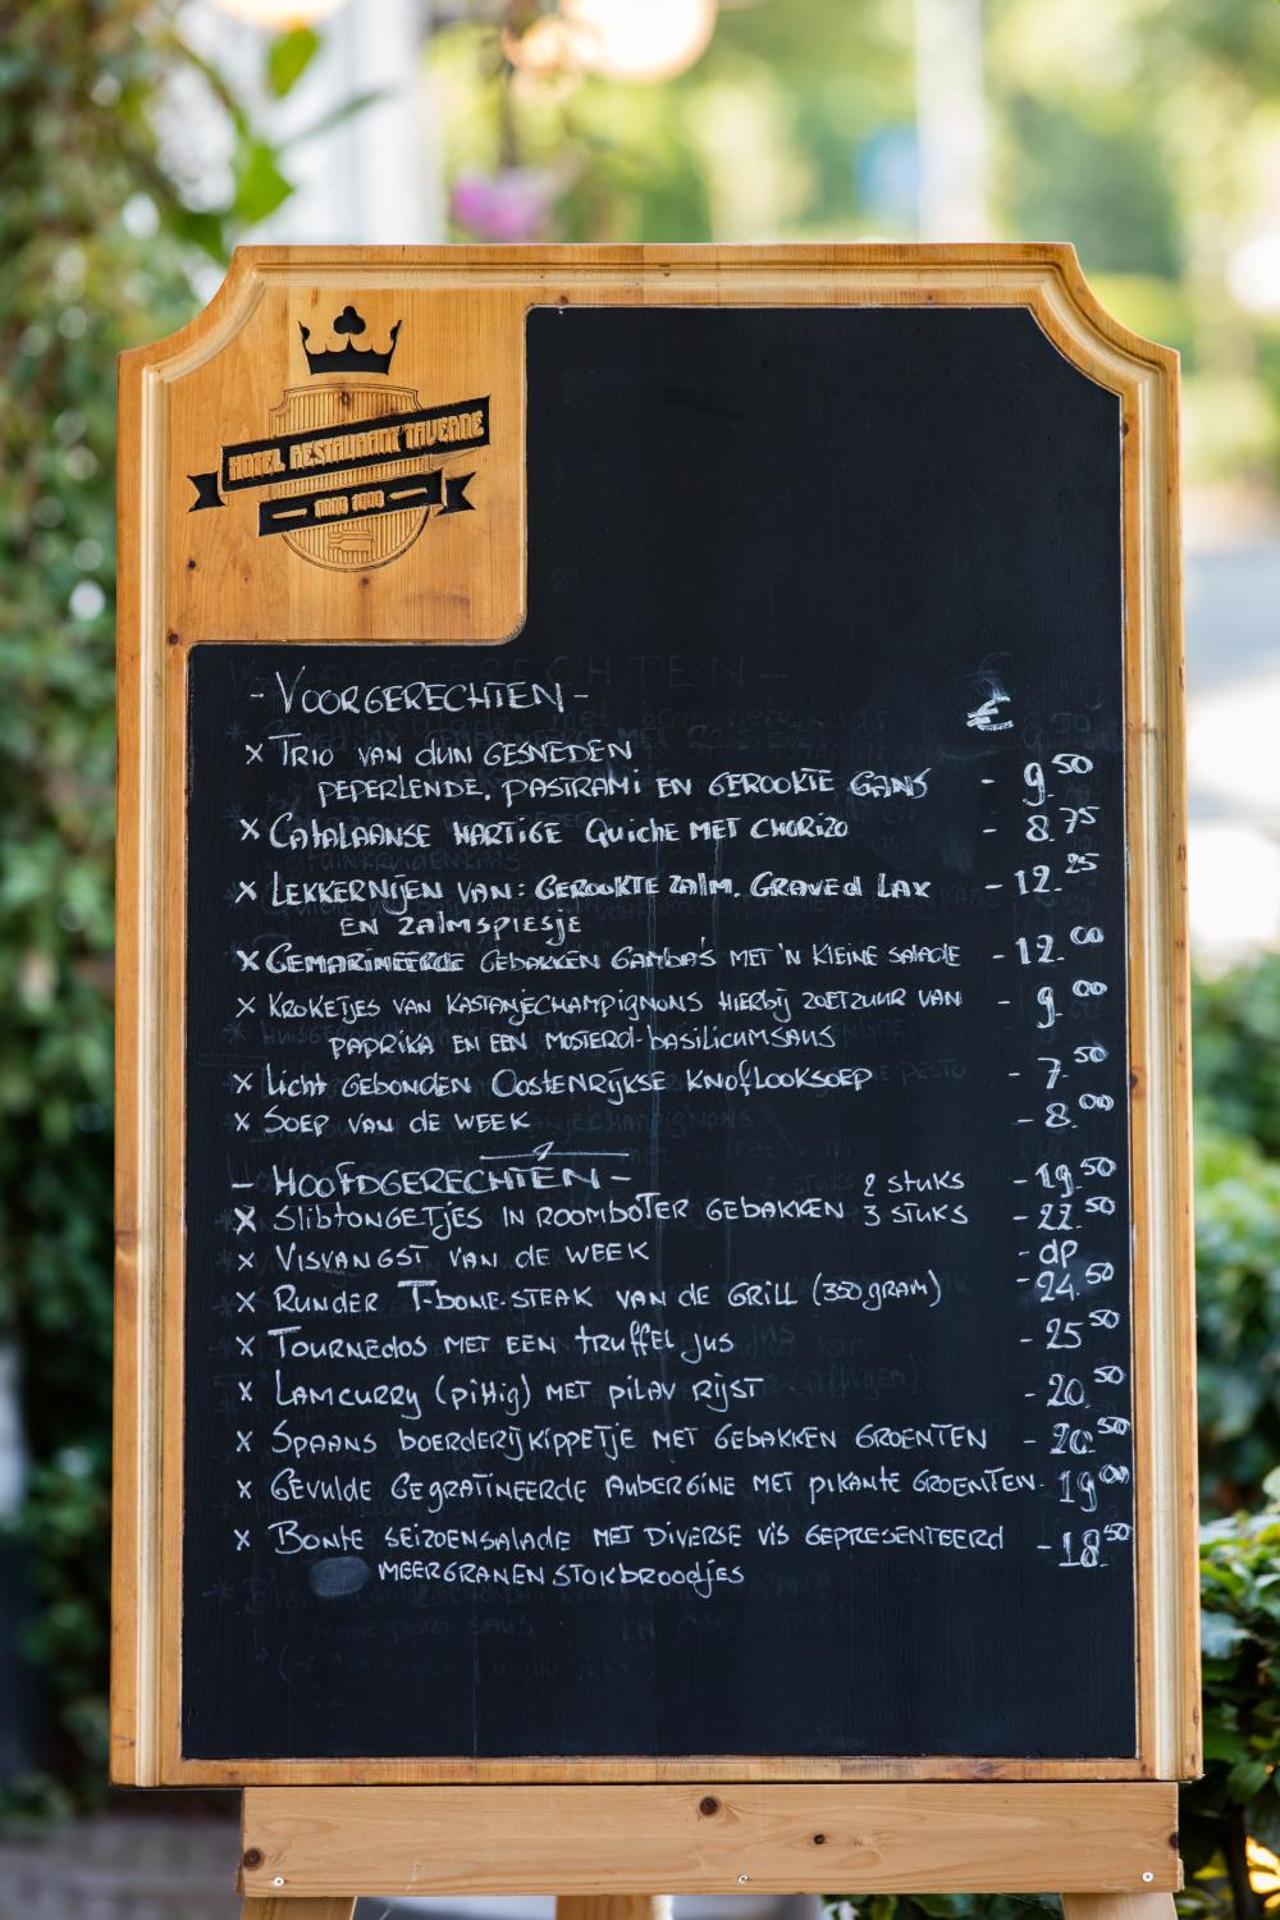 HOTEL RESTAURANT TAVERNE
ANNO
- VOORGERECHTEN - €
X TRIO VAN dUN GESNEDEN
PEPERLENDE, PASTRAMI EN GEROOKTE GANS - 9.50
X CATALAANSE HARTIGE QUICHE MET CHORIZO - 8.75
X LEKKERNIJEN VAN: GEROOKTE ZALM, GRAVED LAX - 12.25
EN ZALMSPIESJE
X GEMARINEERDE GEBAKKEN GAMBA'S MET 'N KLEINE SALADE - 12.00
X KROKETJES VAN KASTANJECHAMPIGNONS HIERBIJ ZOETZUUR VAN - 9.00
PAPRIKA EN EEN MOSTERD-BASILICUMSAUS
X LICHT GEBONDEN OOSTENRIJKSE KNOFLOOKSOEP - 7.50
X SOEP VAN DE WEEK - 8.00
- HOOFDGERECHTEN - 2 STUKS - 19.50
X SLIBTONGETJES IN ROOMBOTER GEBAKKEN 3 STUKS - 22.50
X VISVANGST VAN DE WEEK - dp
X RUNDER T-BONE-STEAK VAN DE GRILL (350 GRAM) - 24.50
X TOURNEDOS MET EEN TRUFFEL JUS - 25.50
X LAMCURRY (PITTIG) MET PILAV RIJST - 20.50
X SPAANS BOERDERIJKIPPETJE MET GEBAKKEN GROENTEN - 20.50
X GEVULDE GEGRATINEERDE AUBERGINE MET PIKANTE GROENTEN - 19.00
X BONTE SEIZOENSALADE MET DIVERSE VIS GEPRESENTEERD - 18.50
MEERGRANEN STOKBROODJES